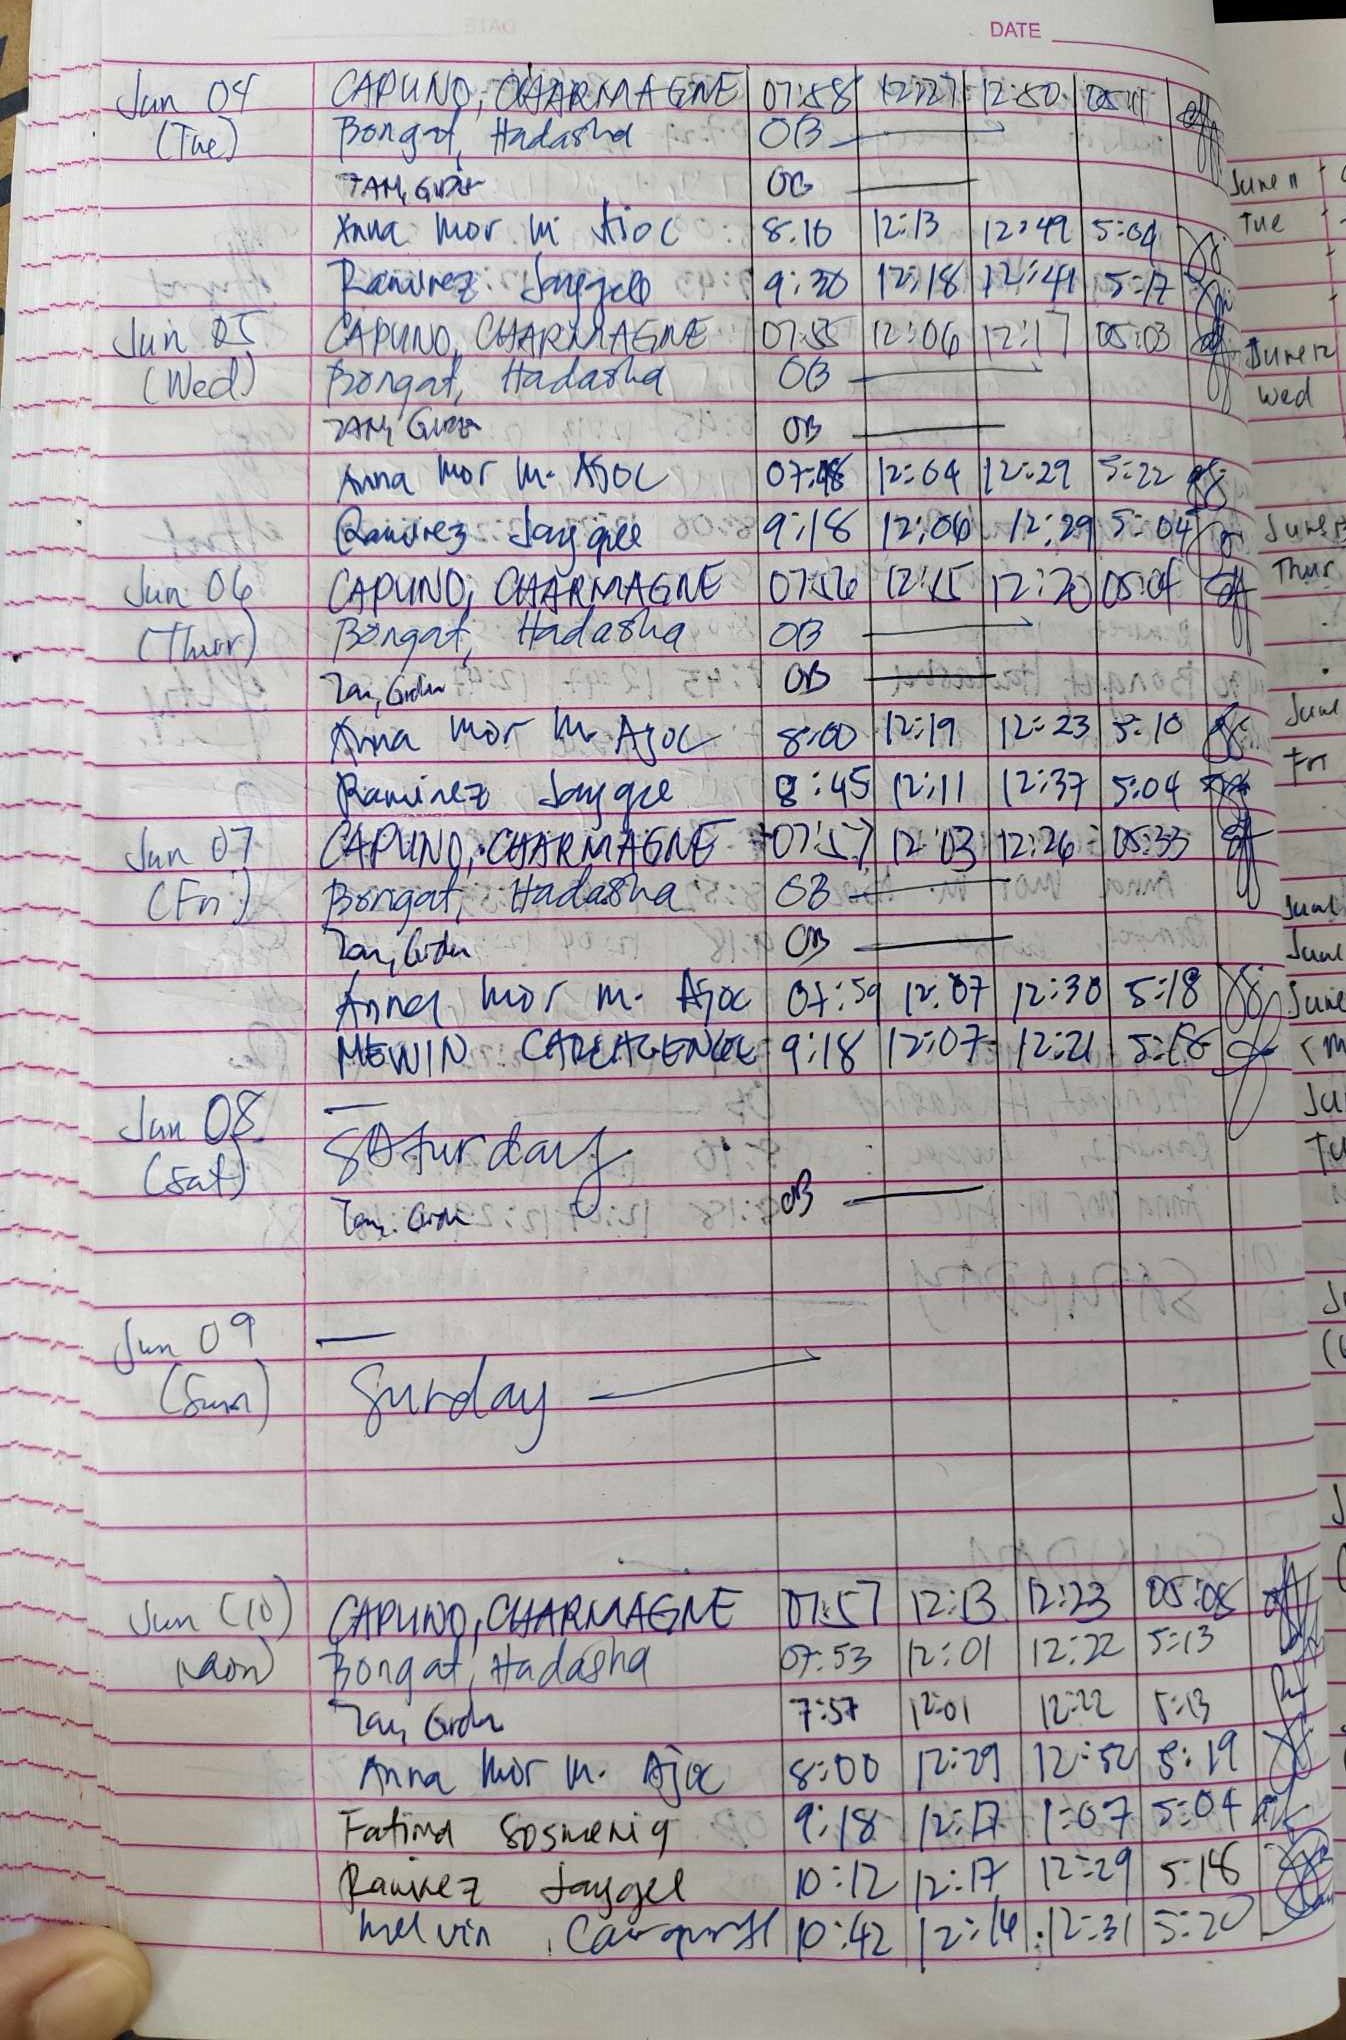 DATE
Jun 04 CAPUNO, CHARMAGNE 07:58 12:27 12:50 05:11
(Tue) Bongat, Hadasha OB
TAN, OB
Anna Mor M Ajoc 8:10 12:13 12:49 5:04
Ramirez Jaygee 9:30 12:18 12:41 5:17
Jun 05 CAPUNO, CHARMAGNE 07:55 12:06 12:17 05:03
(Wed) Bongat, Hadasha OB
TAN, OB
Anna Mor M. Ajoc 07:48 12:04 12:29 5:22
Ramirez Jaygee 9:18 12:06 12:29 5:04
Jun 06 CAPUNO, CHARMAGNE 07:56 12:15 12:20 05:04
(Thur) Bongat, Hadasha OB
Tan, OB
Anna Mor M. Ajoc 8:00 12:19 12:23 5:10
Ramirez Jaygee 8:45 12:11 12:37 5:04
Jun 07 CAPUNO, CHARMAGNE 07:57 12:03 12:26 05:33
(Fri) Bongat, Hadasha OB
Tan, OB
Anna Mor M. Ajoc 07:59 12:07 12:30 5:18
9:18 12:07 12:21 5:18
Jun 08
(Sat) Saturday
Tan, OB
Jun 09
(Sun) Sunday
Jun (10) CAPUNO, CHARMAGNE 07:57 12:13 12:23 05:05
(Mon) Bongat, Hadasha 07:53 12:01 12:22 5:13
Tan, 7:57 12:01 12:22 5:13
Anna Mor M. Ajoc 8:00 12:29 12:52 5:19
Fatima Sosmenia 9:18 12:17 1:07 5:04
Ramirez Jaygee 10:12 12:17 12:29 5:18
Melvin 10:42 12:14 12:31 5:20
June 11
Tue
June 12
Wed
June 13
Thur
June
Fri
June
June
June